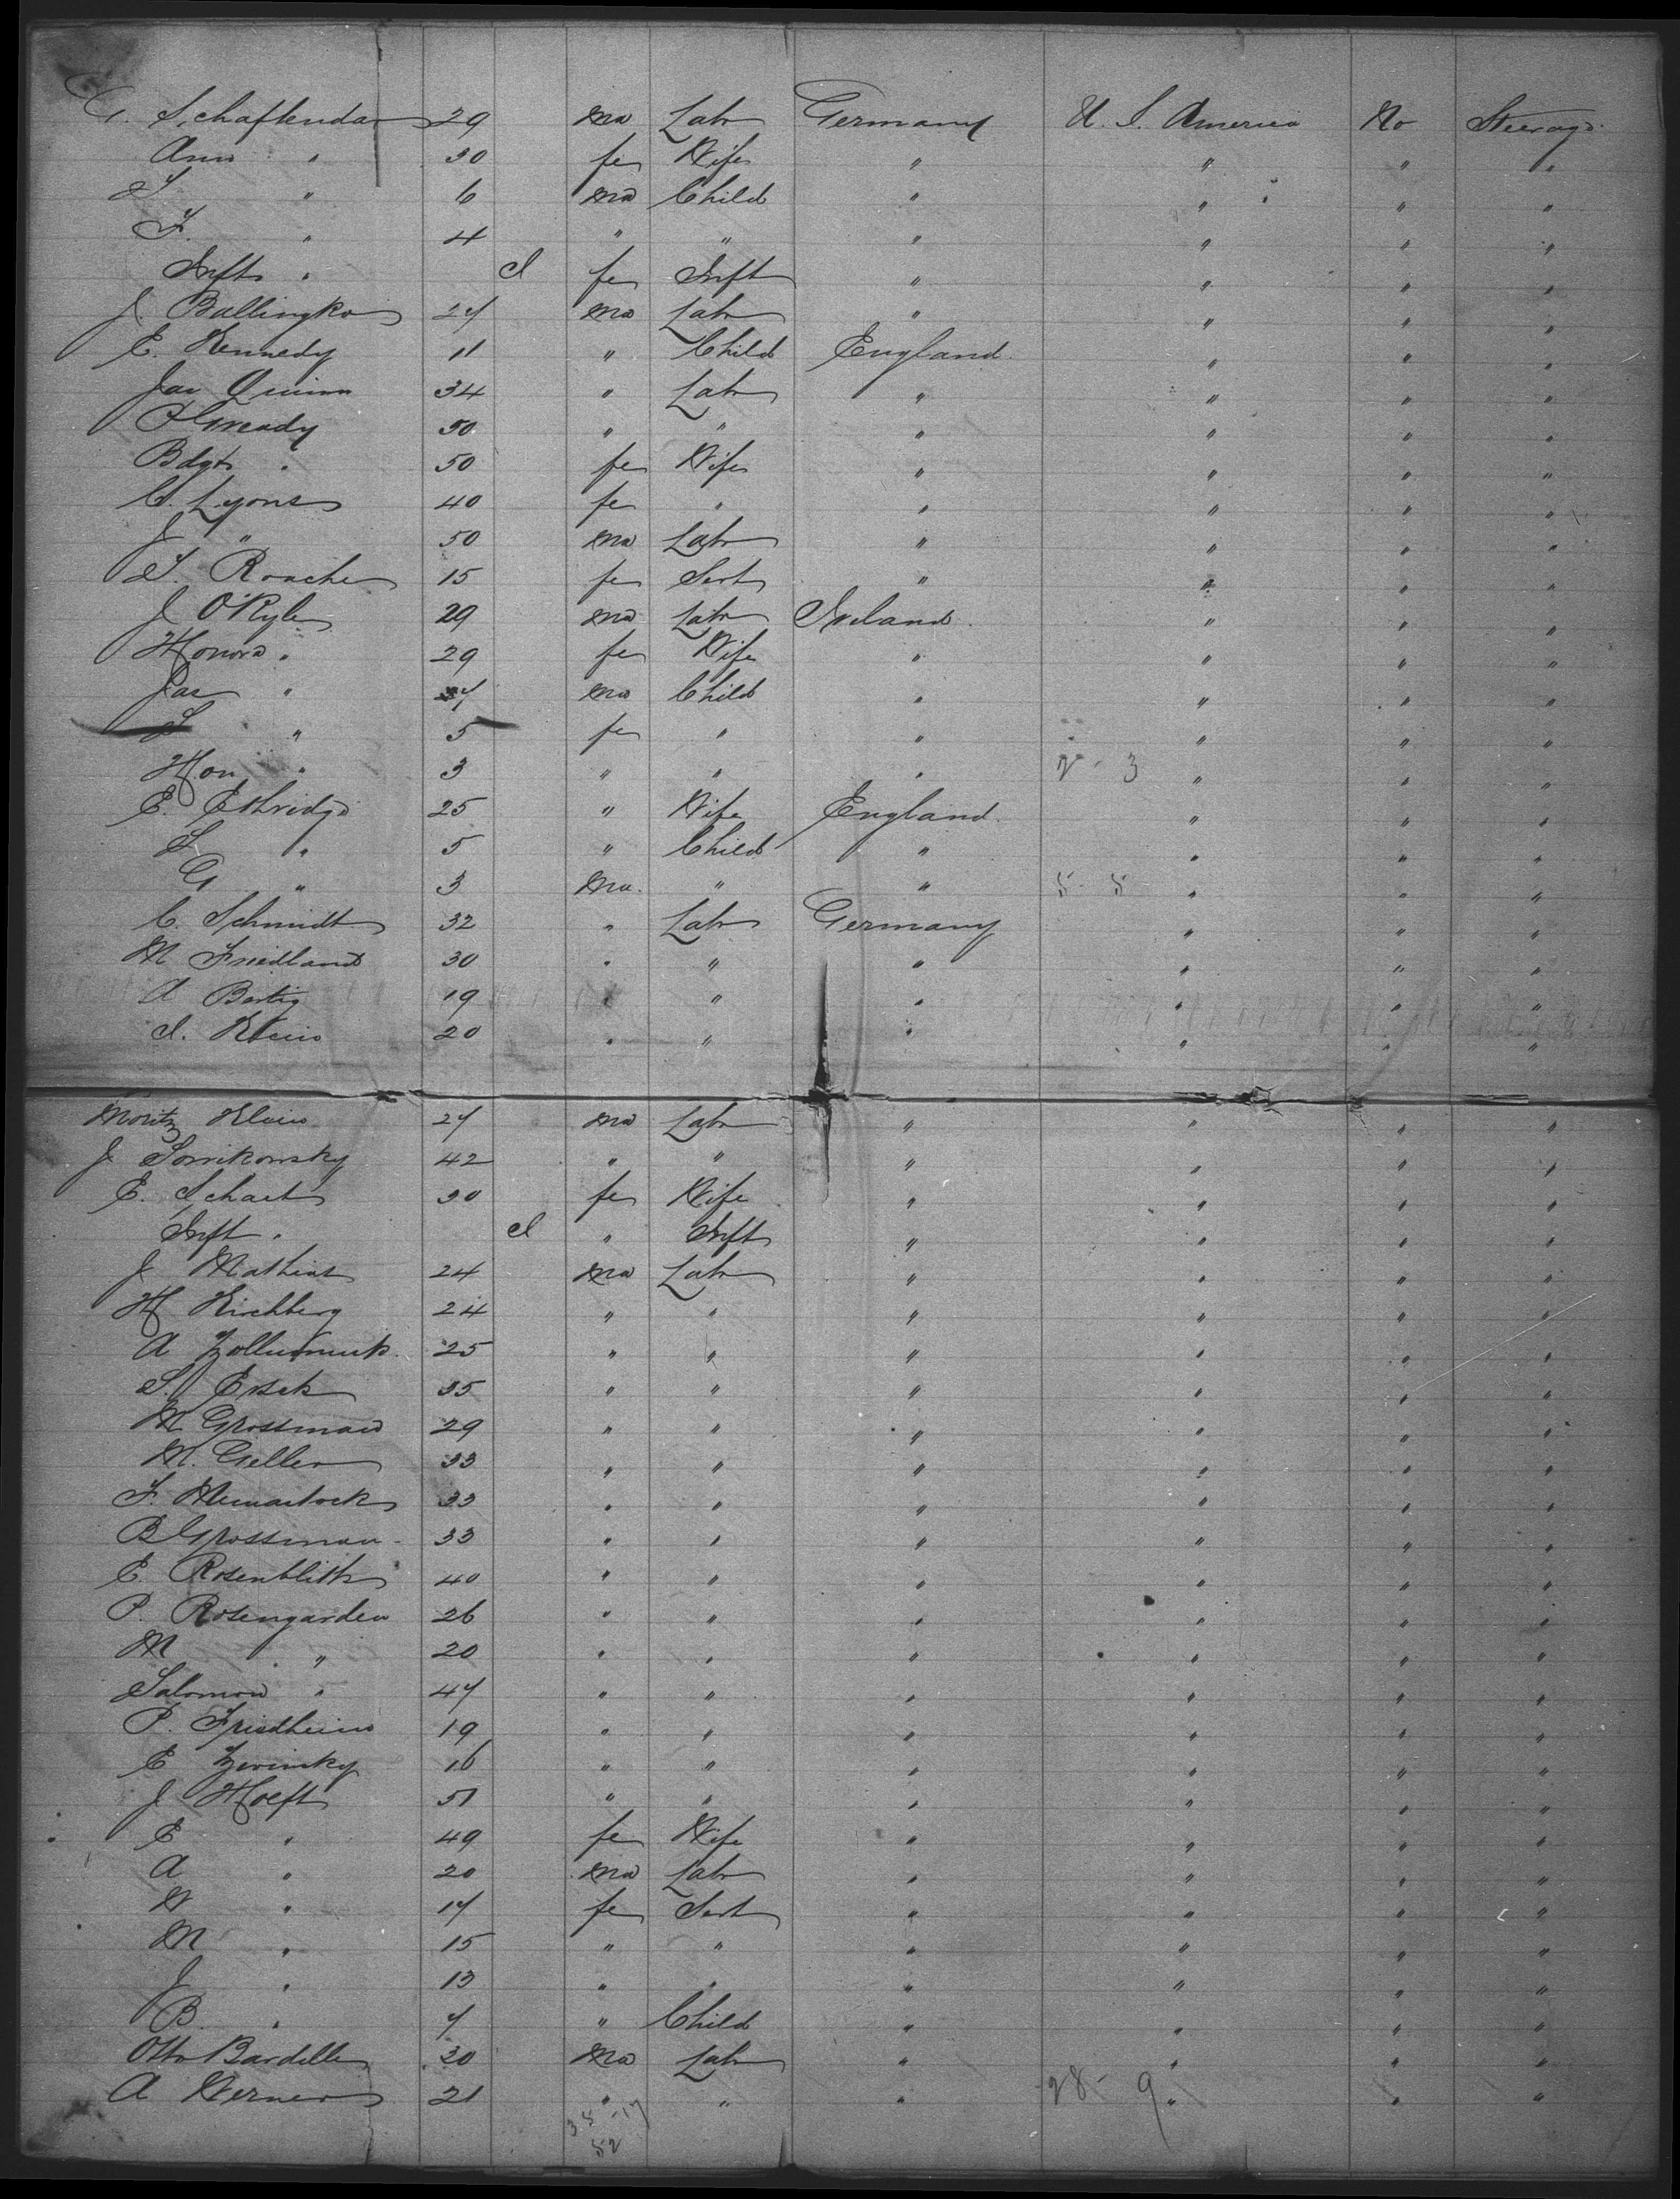 G. Schaftendar 29 Ma Labr Germany U. S. America No Steerage
Ann " 30 fe Wife " " " "
S " 6 Ma Child " " " "
F. " 4 " " " " " "
Inft " I fe Inft " " " "
J. Ballingko 27 Ma Labr " " " "
E. Kennedy 11 " Child England " " "
Jas Quinn 34 " Labr " " " "
P Gready 50 " " " " " "
Bdgt " 50 fe Wife " " " "
C. Lyons 40 fe " " " " "
J " 50 Ma Labr " " " "
S. Roache 15 fe Sert " " " "
J O'Ryle 29 Ma Labr Ireland " " "
Honora " 29 fe Wife " " " "
Jas " 7 Ma Child " " " "
S " 5 fe " " " " "
Hon " 3 " " " 2 - 3 " " "
E. Ethridge 25 " Wife England " " "
S " 5 " Child " " " "
G " 3 Ma. " " 5 - 5 " " "
C. Schmidt 32 " Labr Germany " " "
M Friedland 30 " " " " " "
A Bertig 19 " " " " " "
I. Klein 20 " " " " " "
Moritz Klein 27 Ma Labr " " " "
J Sonikowsky 42 " " " " " "
E. Schact 30 fe Wife " " " "
Inft " I " Inft " " " "
J Mathias 24 Ma Labr " " " "
H Kirchberg 24 " " " " " "
A 25 " " " " " "
S. Ersek 35 " " " " " "
M Grossman 29 " " " " " "
M. Geller 33 " " " " " "
F. 33 " " " " " "
B Grossman 33 " " " " " "
E Rosenblith 40 " " " " " "
P. Rosengarden 26 " " " " " "
M " 20 " " " " " "
Salomon " 47 " " " " " "
P. Friedheim 19 " " " " " "
E Zwinsky 16 " " " " " "
J Hoeft 51 " " " " " "
E " 49 fe Wife " " " "
A " 20 Ma Labr " " " "
W " 17 fe Sert " " " "
M " 15 " " " " " "
J " 13 " " " " " "
B. " 7 " Child " " " "
Otto Bardelle 20 Ma Labr " " " "
A Werner 21 " " " 28 - 9 " " "
35 - 17
52